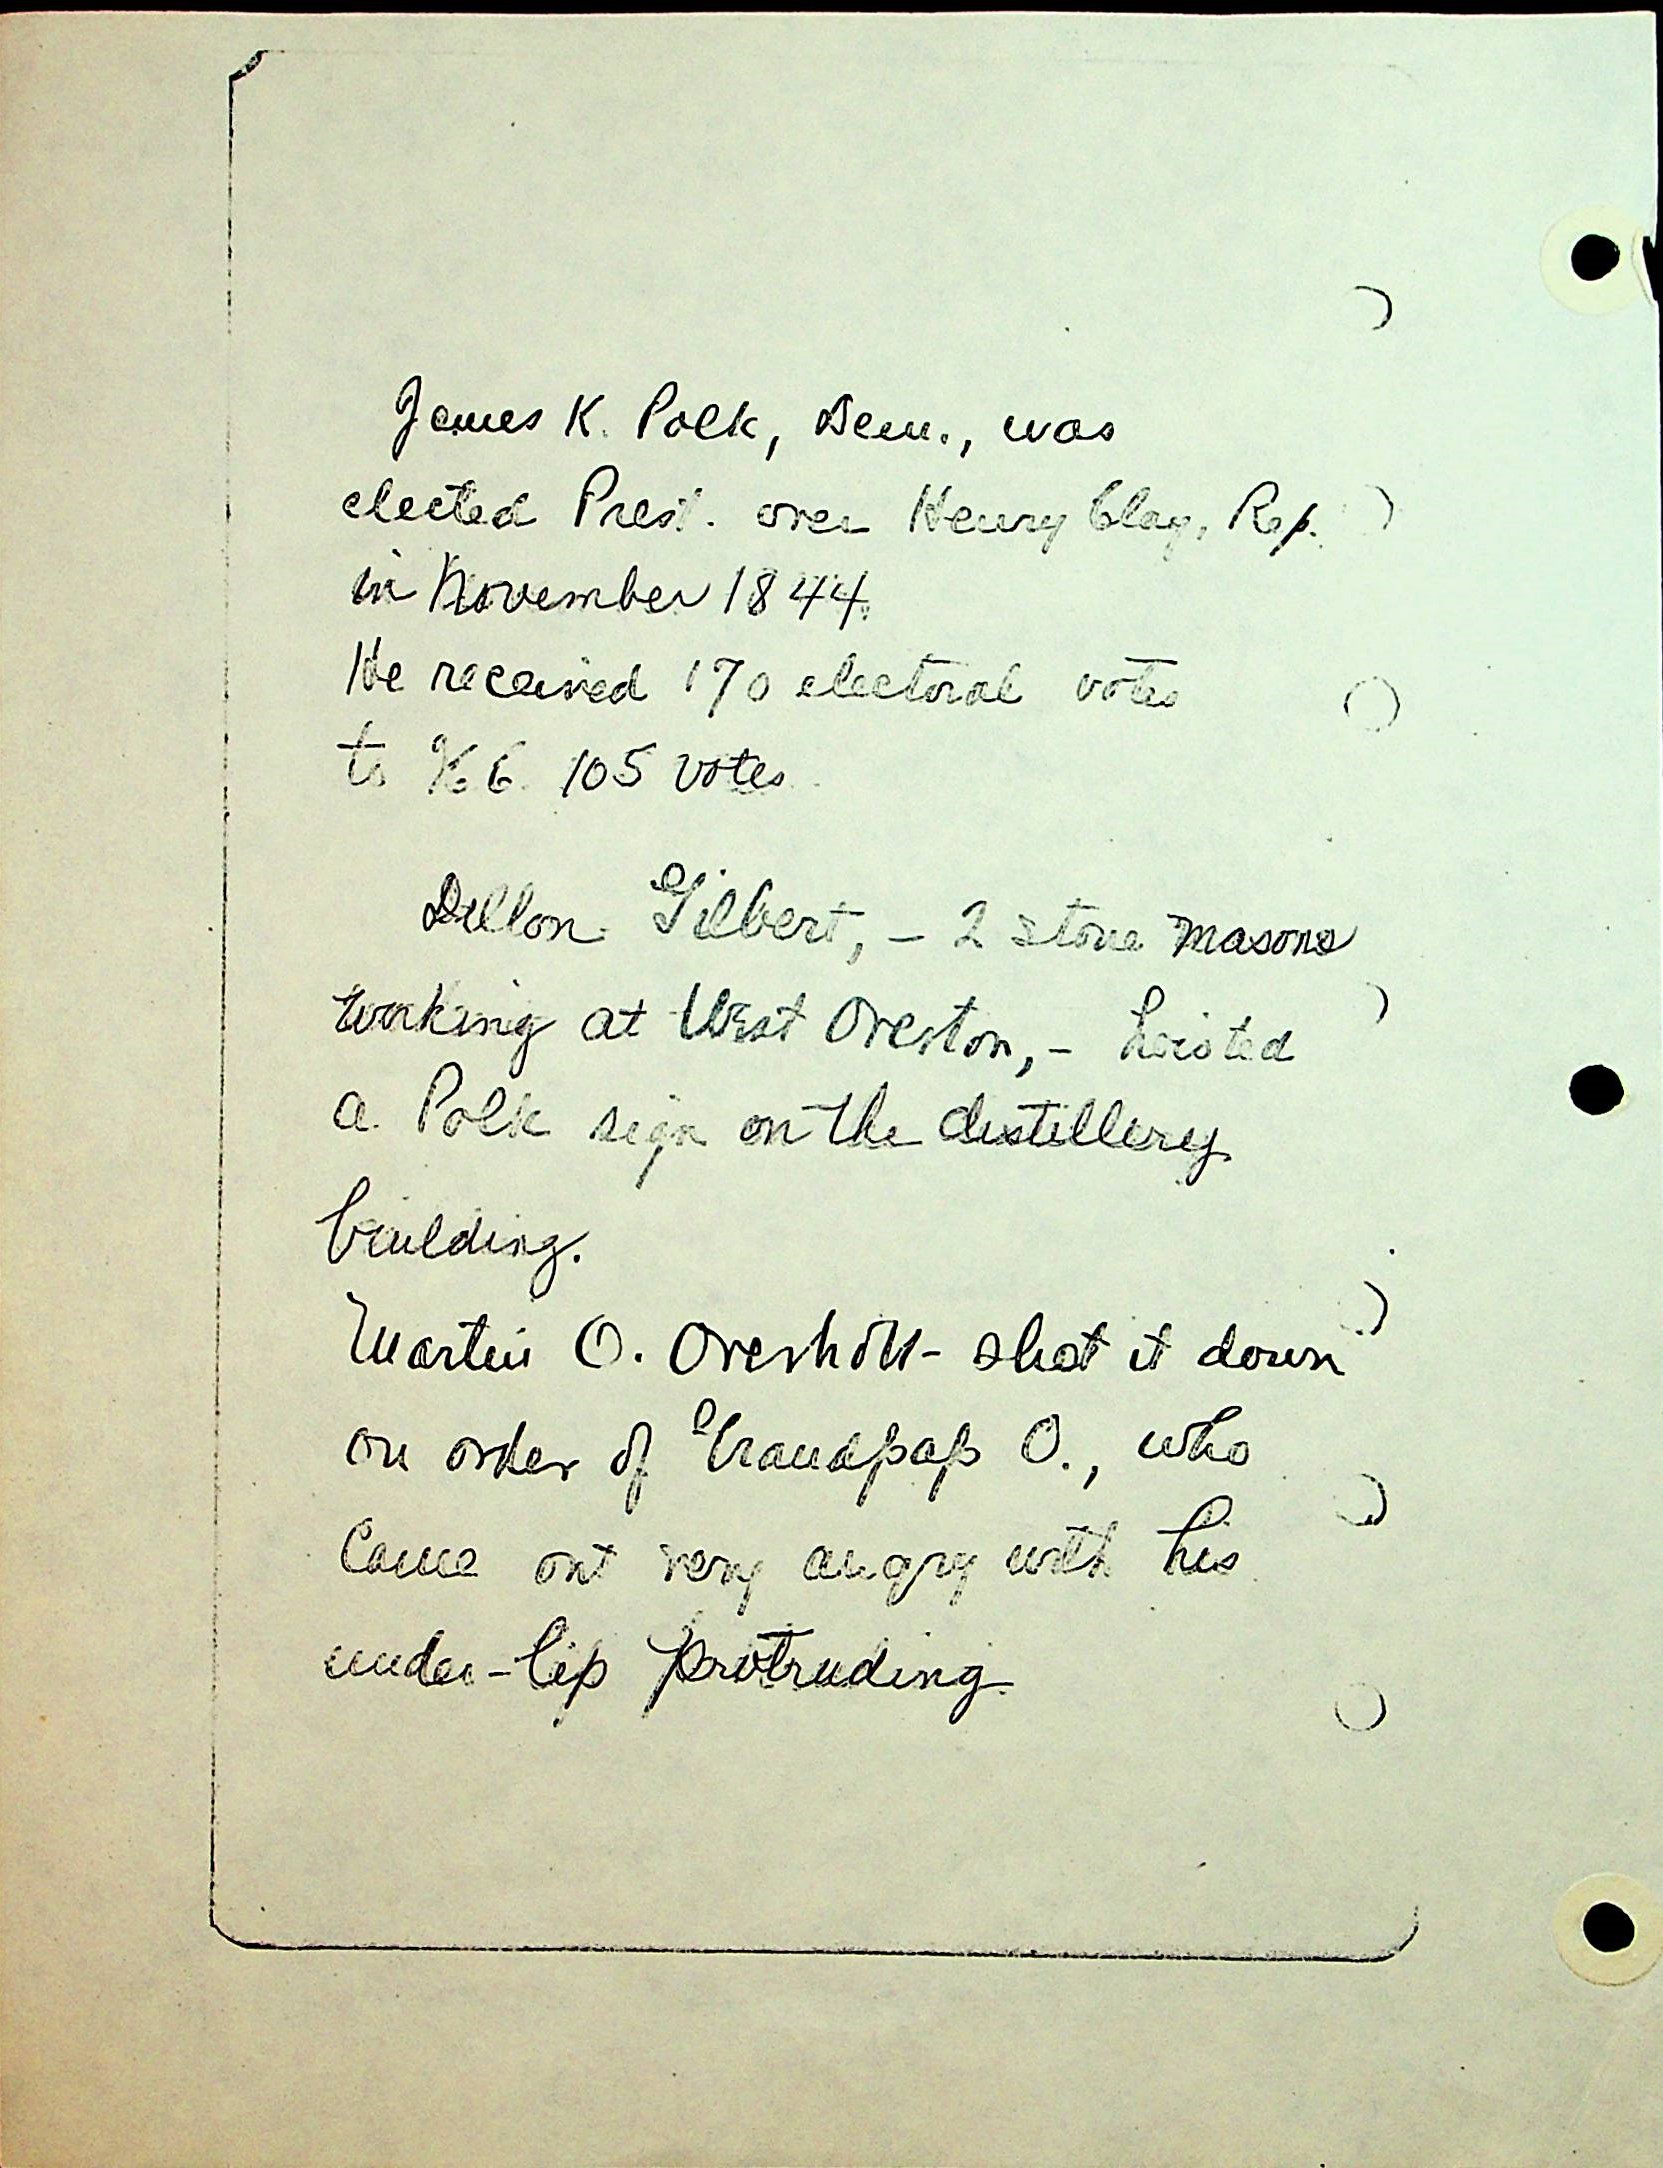 James K. Polk, Dem., was
elected Prest. over Henry Clay, Rep.
in November 1844.
He received 170 electoral votes
to 105 votes.
Dillon Gilbert, - 2 stone masons
working at West Overton, - hoisted
a Polk sign on the distillery
building.
Martin O. Overholt - shot it down
on order of Grandpap O., who
came out very angry with his
under-lip protruding.